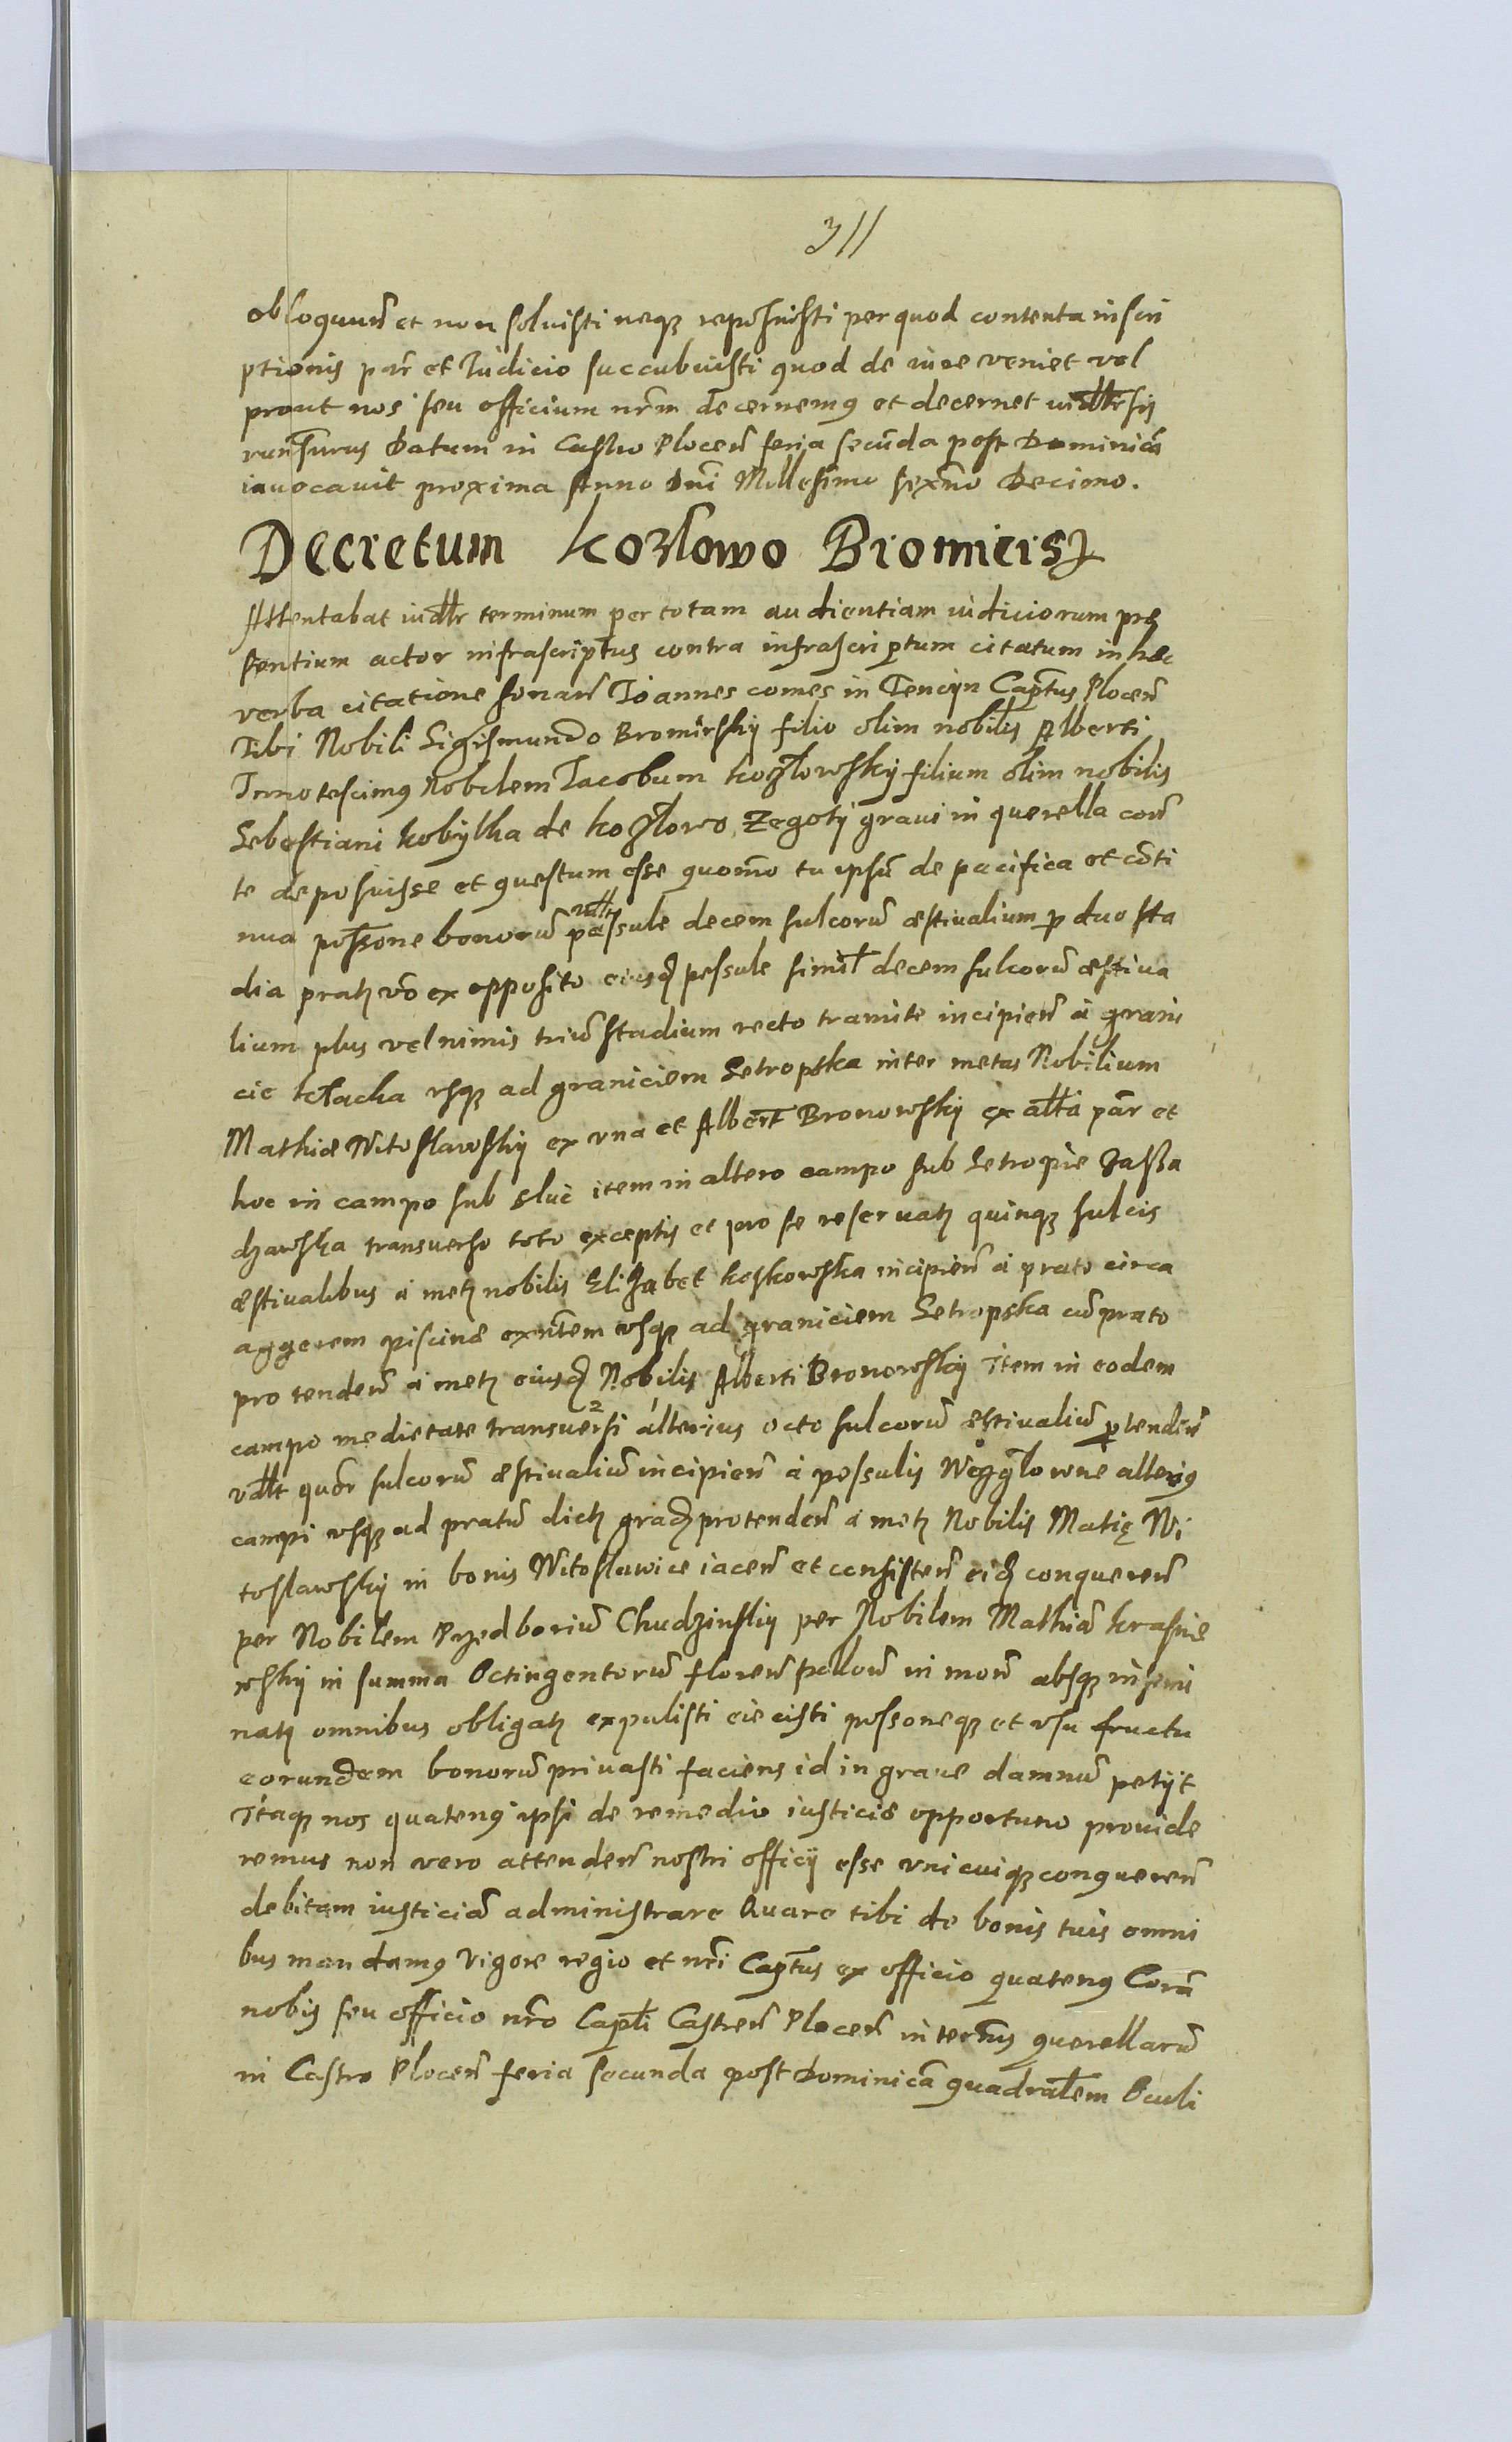 311
obloquutũ et non soluisti neqz reposuisti per quod contenta inscri
ptionis par̃ et Iudicio succubuisti quod de iure veniet vel
prout nos seu officium nr̃m decernemꝰ et decernet
Datum in Castro Plocen̄ feria secũda post Dominicã
inuocavit proxima Anno Dnĩ Millesimo sexm̃o Decimo.
Decretum Kozłowo Bromiersꝫ
Attentabat iudłr terminum per totam audientiam iudiciorum prę
sentium actor infrascriptus contra infrascriptum citatum in hæc
verba citatione sonan̄ Ioannes comes in Tencyn Capt̃us Plocen̄
Tibi Nobili Sigismundo Bromirsky filio olim nobilis Alberti
Innotescimꝰ Nobilem Iacobum Kozłowsky filium olim nobilis
Sebestiani Kobyłka de Kozłowo Zegoty graui in querella corã
te deposuisse et questum esse quom̃o tu ipsũ de pacifica et cõti
nua possone bonorũ vdłt pæssule decem sulcorũ æstiualium p duo sta
dia pratꝫ vo ex opposito eiusdꝫ pessule simił decem sulcorũ æstiua
lium plus vel nimis triũ stadium recto tramite incipien̄ á grani
cie usqz ad graniciem Setropska inter metas Nobilium
Mathiæ Witosławsky ex vna et Albert̃ Bronowsky ex alła par̃ et
hoc in campo sub item in altero campo sub Setropie
transuerso toto exceptis et pro se reseruatꝫ quinqz sulcis
æstiualibus á metꝫ nobilis Elizabet Koskowska incipien̄ á prato circa
aggerem piscinæ exñtem vsqz ad graniciem Setropska cũ prato
protenden̄ á metꝫ eiusdꝫ Nobilis Alberti Bronowsky Item in eodem
campo medietate transuersi alterius octo sulcorũ æstiualiũ ptenden̄
vdłt quõr sulcorũ æstiualiũ incipien̄ á pessulis alterius
campi vsqz ad pratũ dictꝫ protenden̄ á metꝫ Nobilis Matię Wi
tosławsky in bonis Witosławice iacen̄ et consisten̄ eidꝫ conqueren̄
per Nobilem Przedboriũ Chudzinsky per Nobilem Mathiã Krasnie
wsky in summa Octingentorũ floren̄ pollon̄ in mon̄ absqz insemi
natꝫ omnibus obligatꝫ expulisti eiecisti possoneqz et vsu fructu
eorundem bonorũ priuasti faciens id in graue damnũ petijt
Itaqz nos quatenꝰ ipsi de remedio iusticiæ opportuno prouide
remus non vero attenden̄ nostri officij esse vnicuiqz conqueren̄
debitam iusticiã administrare Quare tibi de bonis tuis omni
bus mandamꝰ vigore regio et nr̃i Capt̃us ex officio quatenꝰ Corã
nobis seu officio nr̃o Capłi Castren̄ Plocen̄ in termĩs querellarũ
in Castro Plocen̄ feria secunda post Dominicã quadrałem Oculi